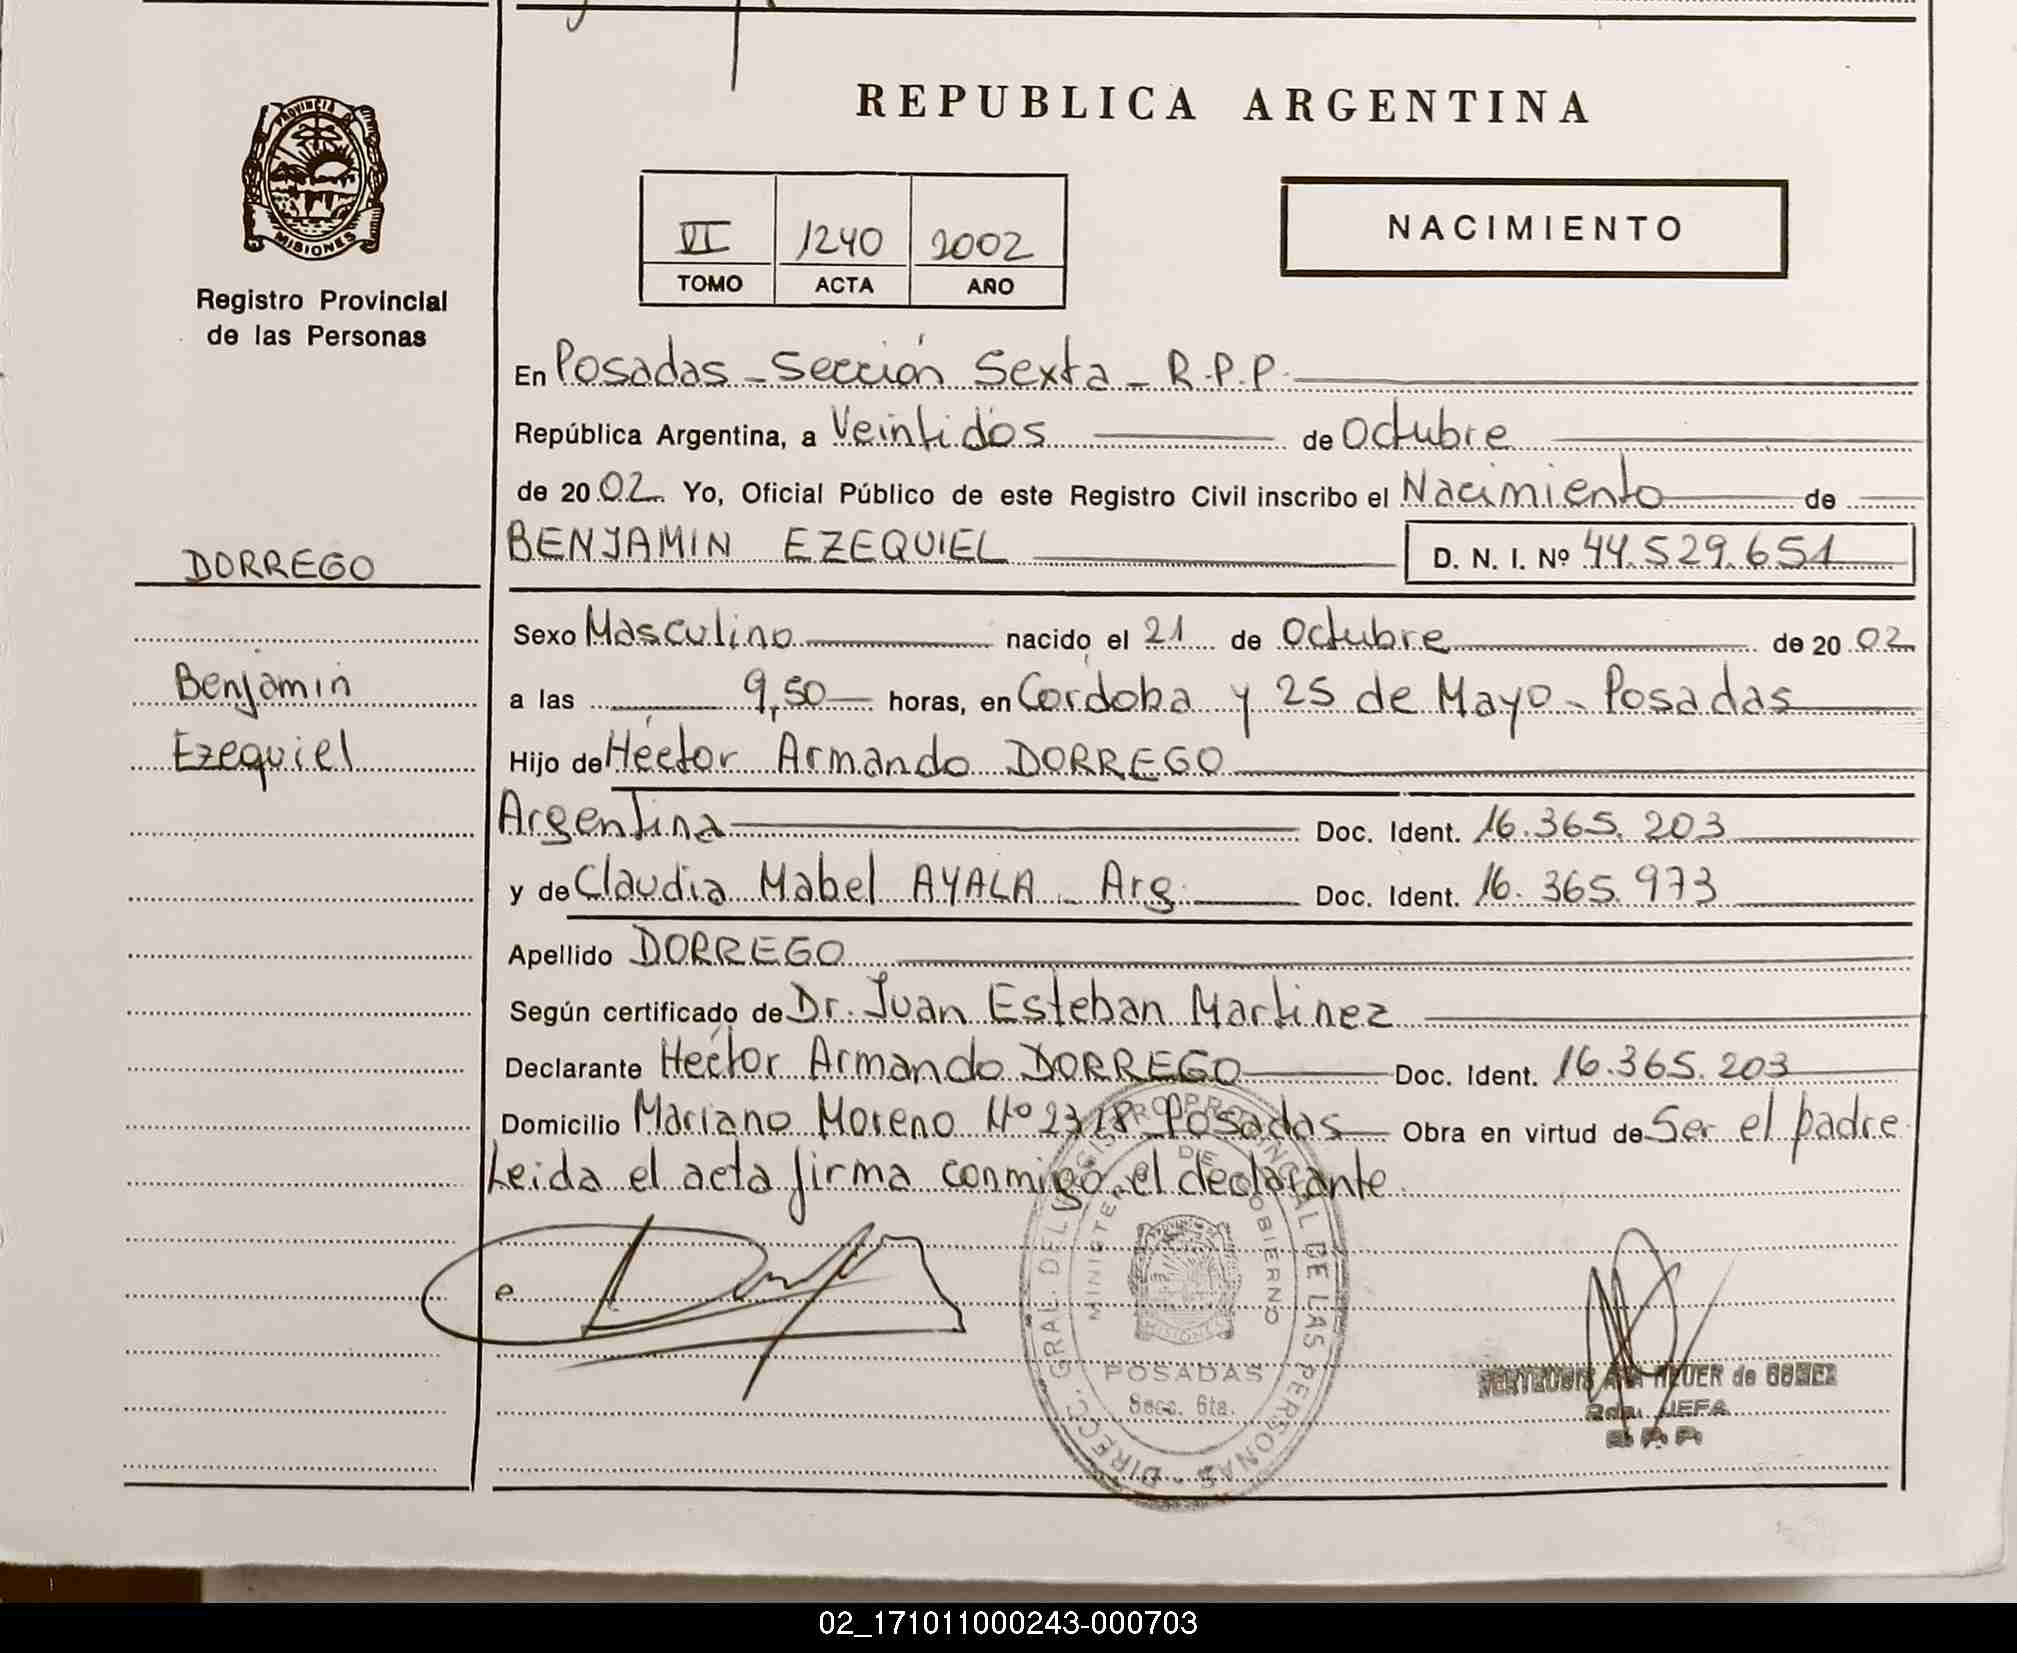 REPUBLICA ARGENTINA
PROVINCIA DE
MISIONES
Registro Provincial
de las Personas
VI 1240 2002
TOMO ACTA AÑO
NACIMIENTO
En Posadas - Sección Sexta - R.P.P.
República Argentina, a Veintidós de Octubre
de 2002. Yo, Oficial Público de este Registro Civil inscribo el Nacimiento de
BENJAMIN EZEQUIEL D. N. I. Nº 44.529.651
DORREGO
Benjamin
Ezequiel
Sexo Masculino nacido el 21 de Octubre de 2002
a las 9,50 horas, en Córdoba y 25 de Mayo - Posadas
Hijo de Héctor Armando DORREGO
Argentina Doc. Ident. 16.365.203
y de Claudia Mabel AYALA - Arg. Doc. Ident. 16.365.973
Apellido DORREGO
Según certificado de Dr. Juan Esteban Martinez
Declarante Héctor Armando DORREGO Doc. Ident. 16.365.203
Domicilio Mariano Moreno Nº 2318 Posadas Obra en virtud de Ser el padre
Leida el acta firma conmigo el declarante
DIREC. GRAL. DEL REGISTRO PROVINCIAL DE LAS PERSONAS
MINISTERIO DE GOBIERNO
MISIONES
POSADAS
Secc. 6ta.
HEUER de GOMEZ
JEFA
02_171011000243-000703